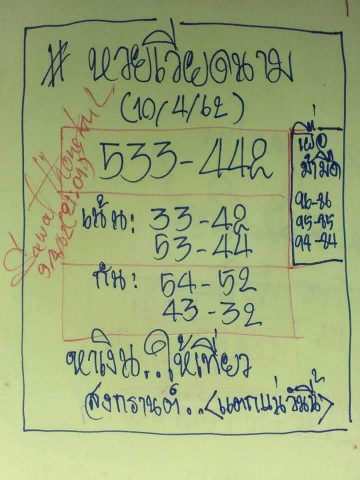 # หวยเวียดนาม
(10/4/62)
533-442
เน้น: 33-42
53-44
กัน: 54-52
43-32
เผื่อ
96-86
95-85
94-84
หาเงิน..ให้เที่ยว
สงกรานต์..(แตกแน่วันนี้)